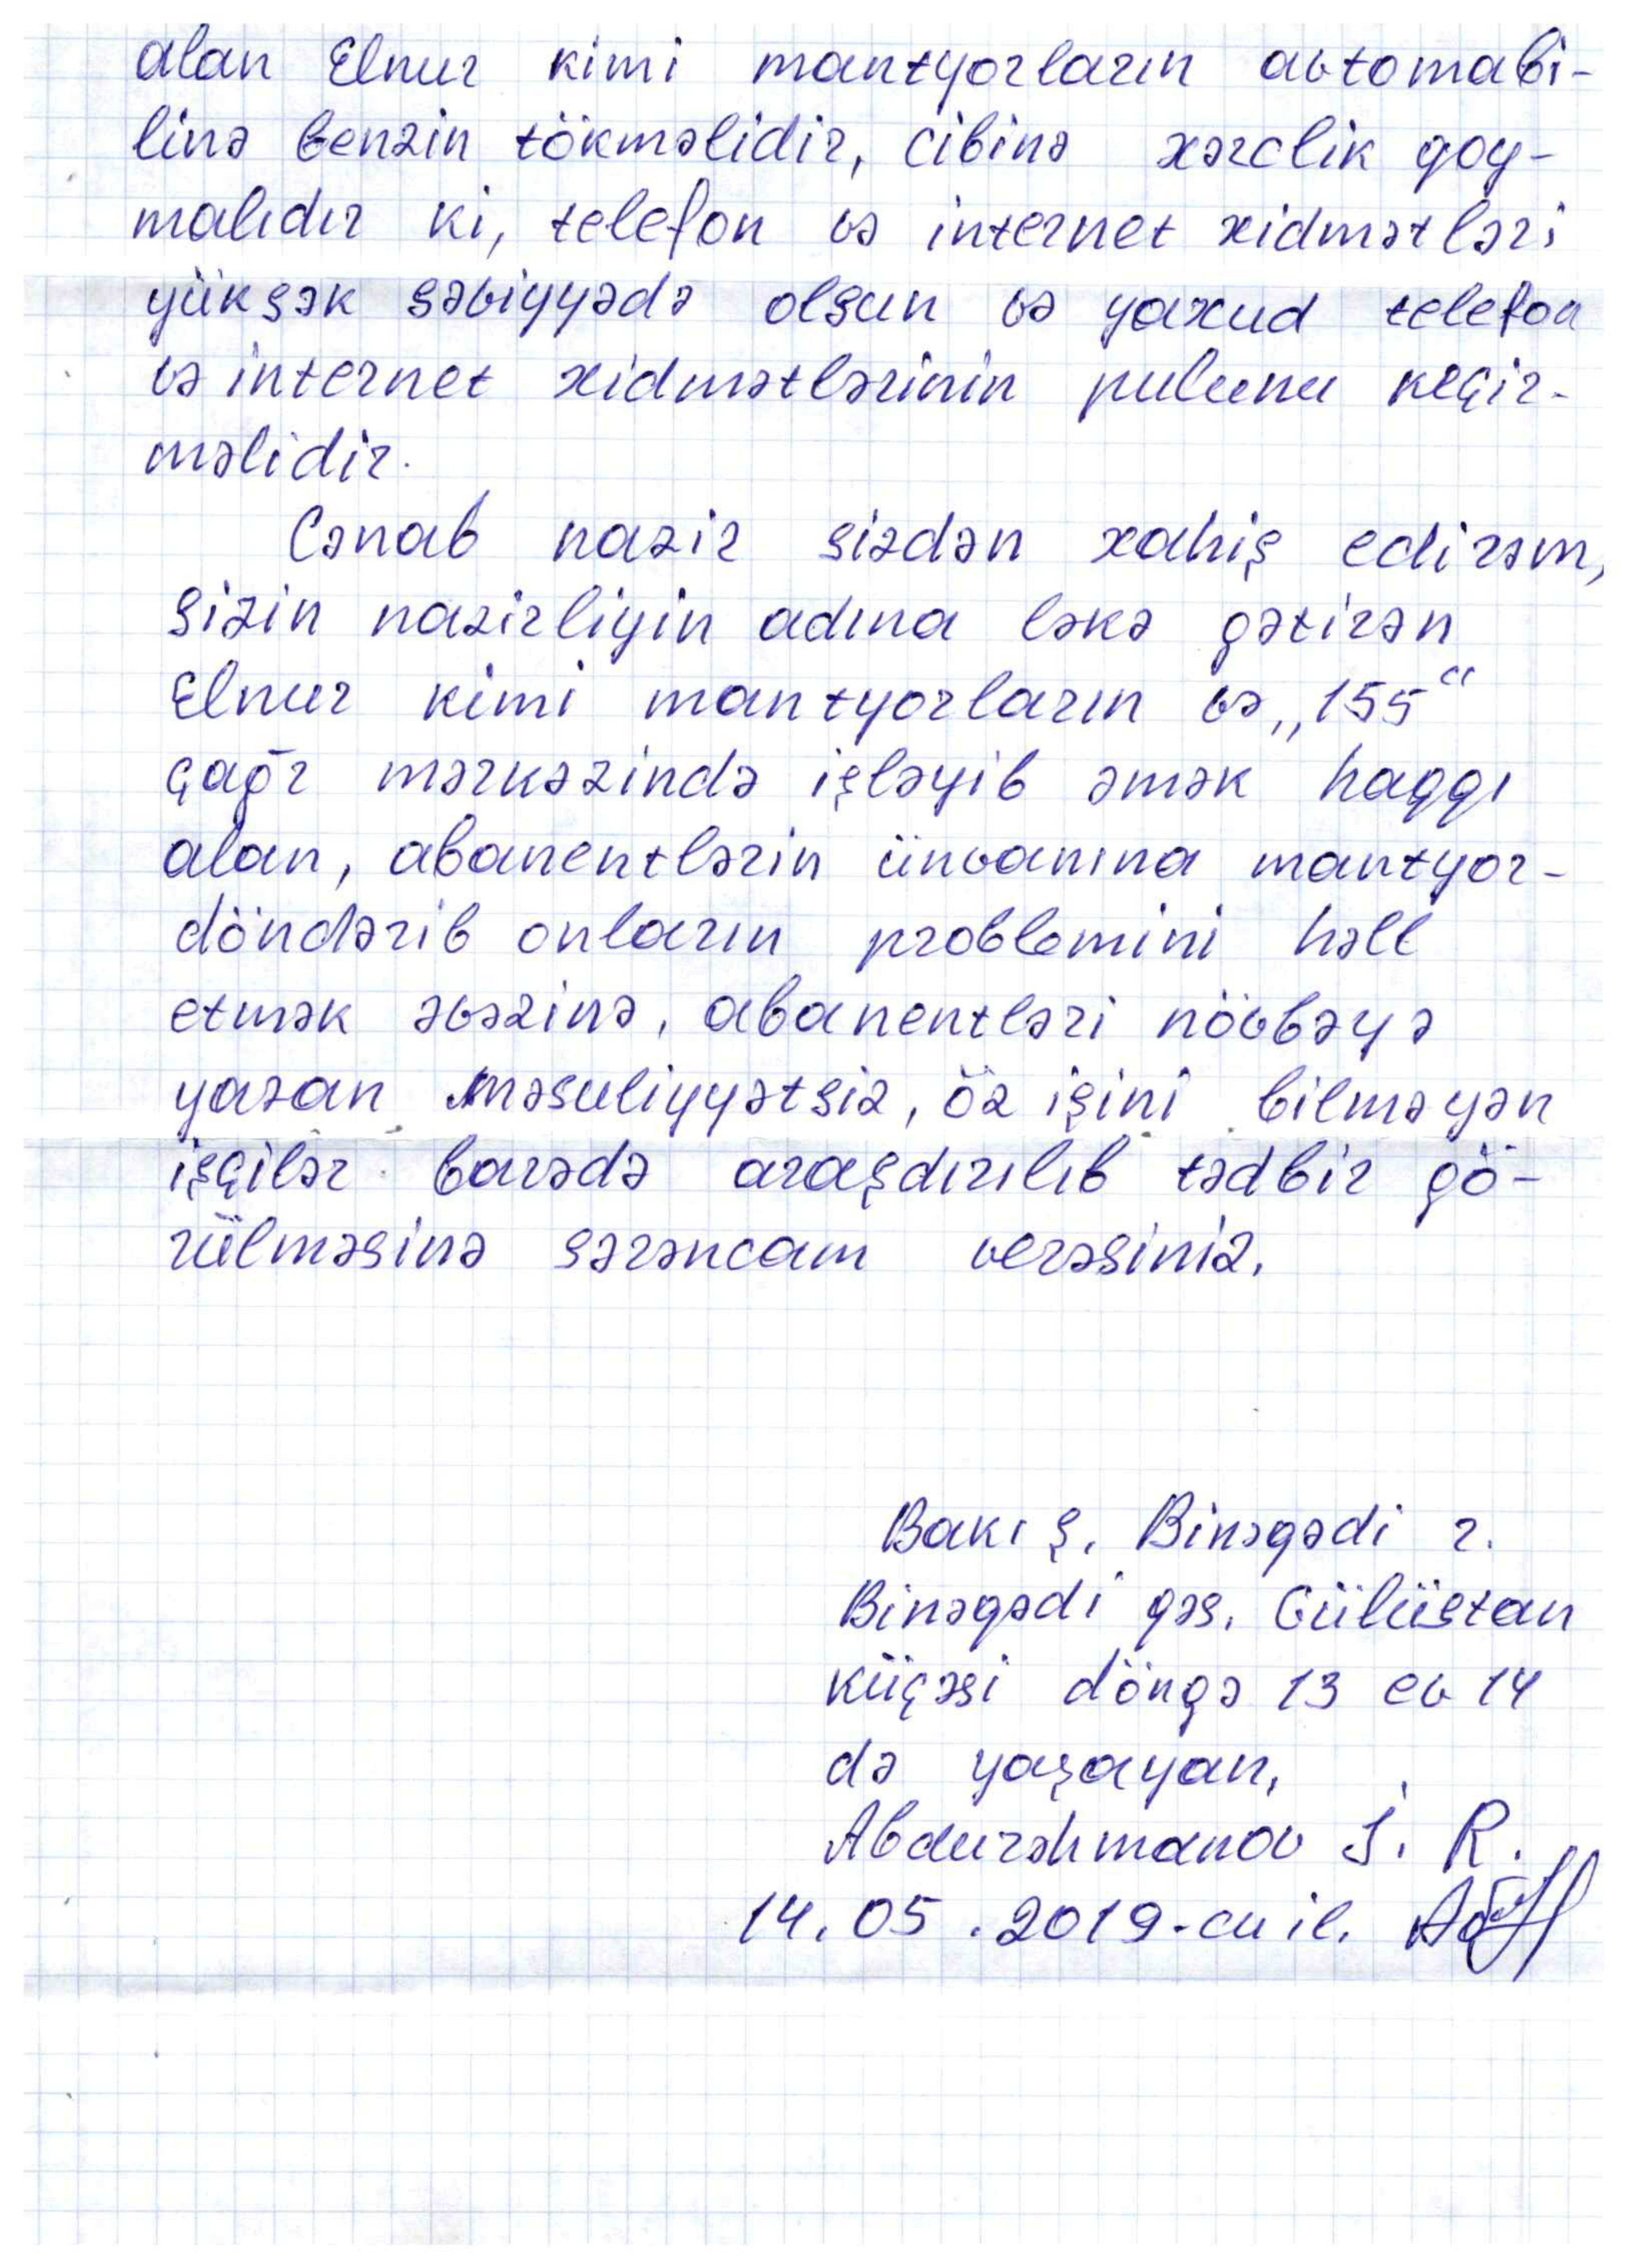 alan Elnur kimi mantyorların avtomabi-
linə benzin tökməlidir, cibinə xərclik qoy-
malıdır ki, telefon və internet xidmətləri
yüksək səviyyədə olsun və yaxud telefon
və internet xidmətlərinin pulunu keçir-
məlidir.
Cənab nazir sizdən xahiş edirəm,
sizin nazirliyin adına ləkə gətirən
Elnur kimi mantyorların və „155“
çağr mərkəzində işləyib əmək haqqı
alan, abanentlərin ünvanına mantyor-
döndərib onların problemini həll
etmək əvəzinə, abanentləri növbəyə
yazan məsuliyyətsiz, öz işini bilməyən
işçilər barədə araşdırılıb tədbir gö-
rülməsinə sərəncam verəsiniz.
Bakı ş. Binəqədi r.
Binəqədi qəs. Gülüstan
küçəsi döngə 13 ev 14
də yaşayan,
Abdurəhmanov İ. R.
14.05.2019-cu il.